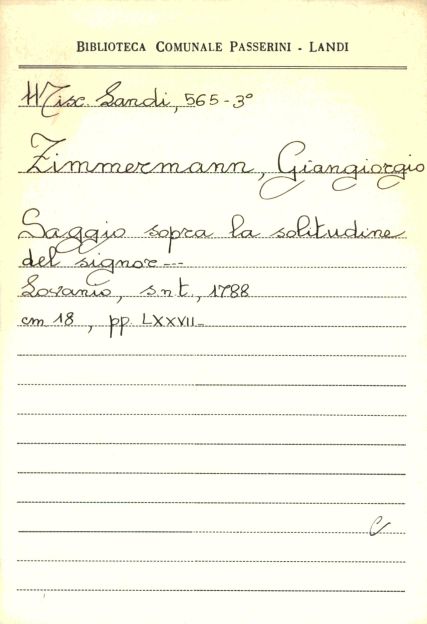 BIBLIOTECA COMUNALE PASSERINI - LANDI
Misc Landi, 565-3°
Zimmermann, Giangiorgio
Saggio sopra la solitudine
del signor---
Lovanio, s.n.t., 1788
cm 18, pp. LXXVII-
C